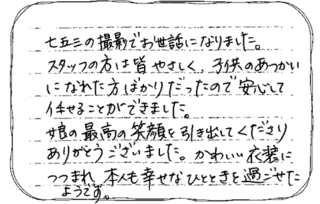 七五三の撮影でお世話になりました。
スタッフの方は皆やさしく、子供のあつかい
になれた方ばかりだったので安心して
任せることができました。
娘の最高の笑顔を引き出してくださり
ありがとうございました。かわいい衣装に
つつまれ、本人も幸せなひとときを過ごせた
ようです。